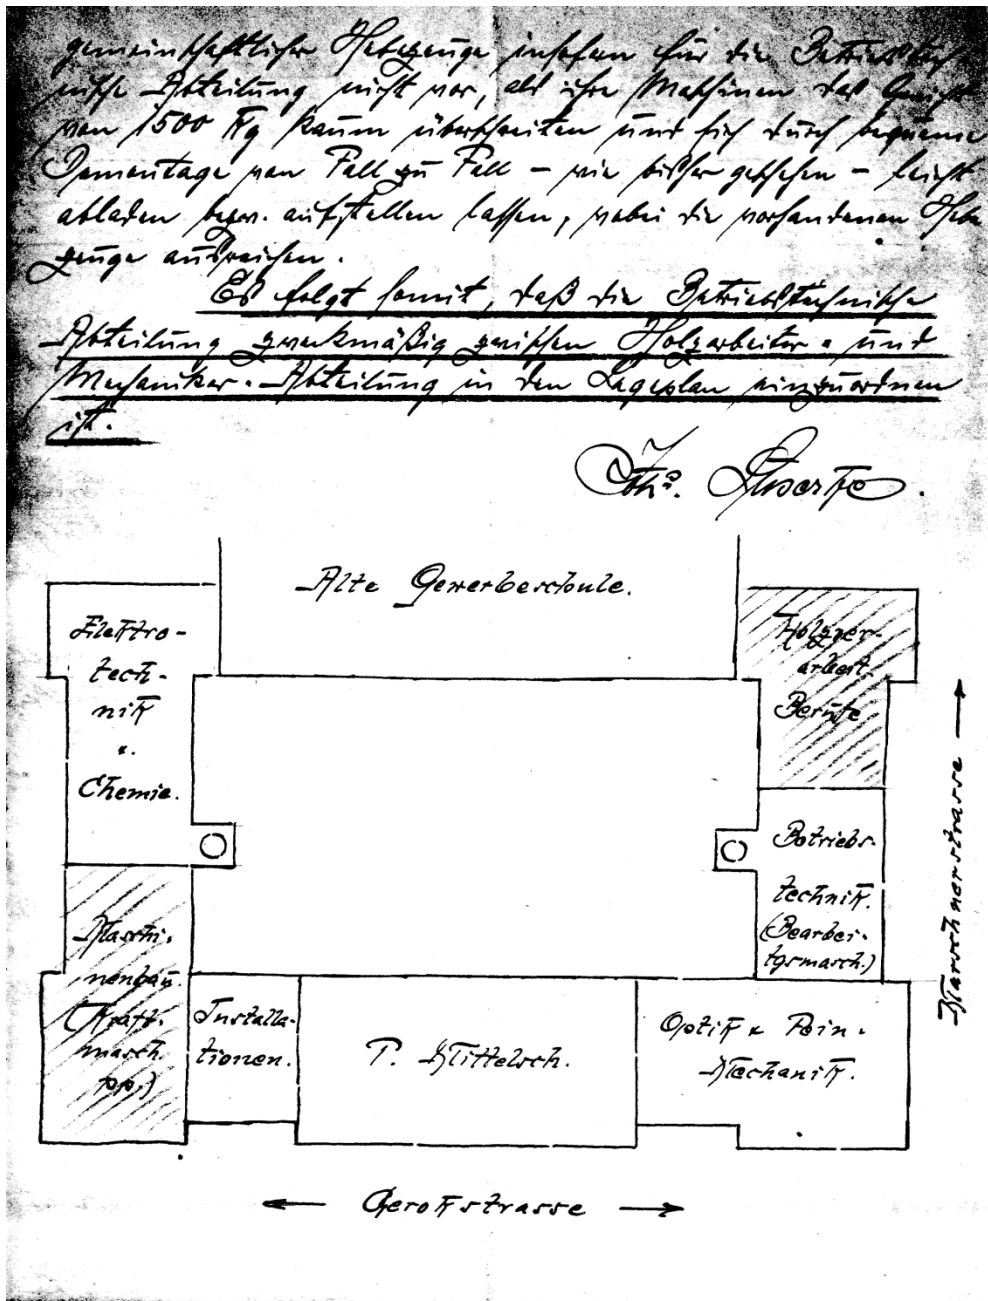 gemeinschaftlicher Hebezeuge insofern für die Betriebstech-
nische Abteilung nicht vor, als ihre Maschinen das Gewicht
von 1500 Kg kaum überschreiten und sich durch bequeme
Demontage von Fall zu Fall – wie bisher geschehen – leicht
abladen bezw. aufstellen lassen, wobei die vorhandenen Hebe
zeuge ausreichen.
Es folgt somit, daß die Betriebstechnische
Abteilung zweckmäßig zwischen Holzarbeiter- und
Mechaniker-Abteilung in den Lageplan einzuordnen
ist.
Alte Gewerbeschule.
Elektro-
tech-
nik
u.
Chemie.
Holzver-
arbeit.
Berufe
Betriebs-
technik.
(Bearbei-
tgsmasch.)
Marschnerstrasse
Maschi-
nenbau.
(Kraft-
masch.
pp.)
Installa-
tionen.
P. Mittelsch.
Optik u. Fein-
Mechanik.
Gerokstrasse